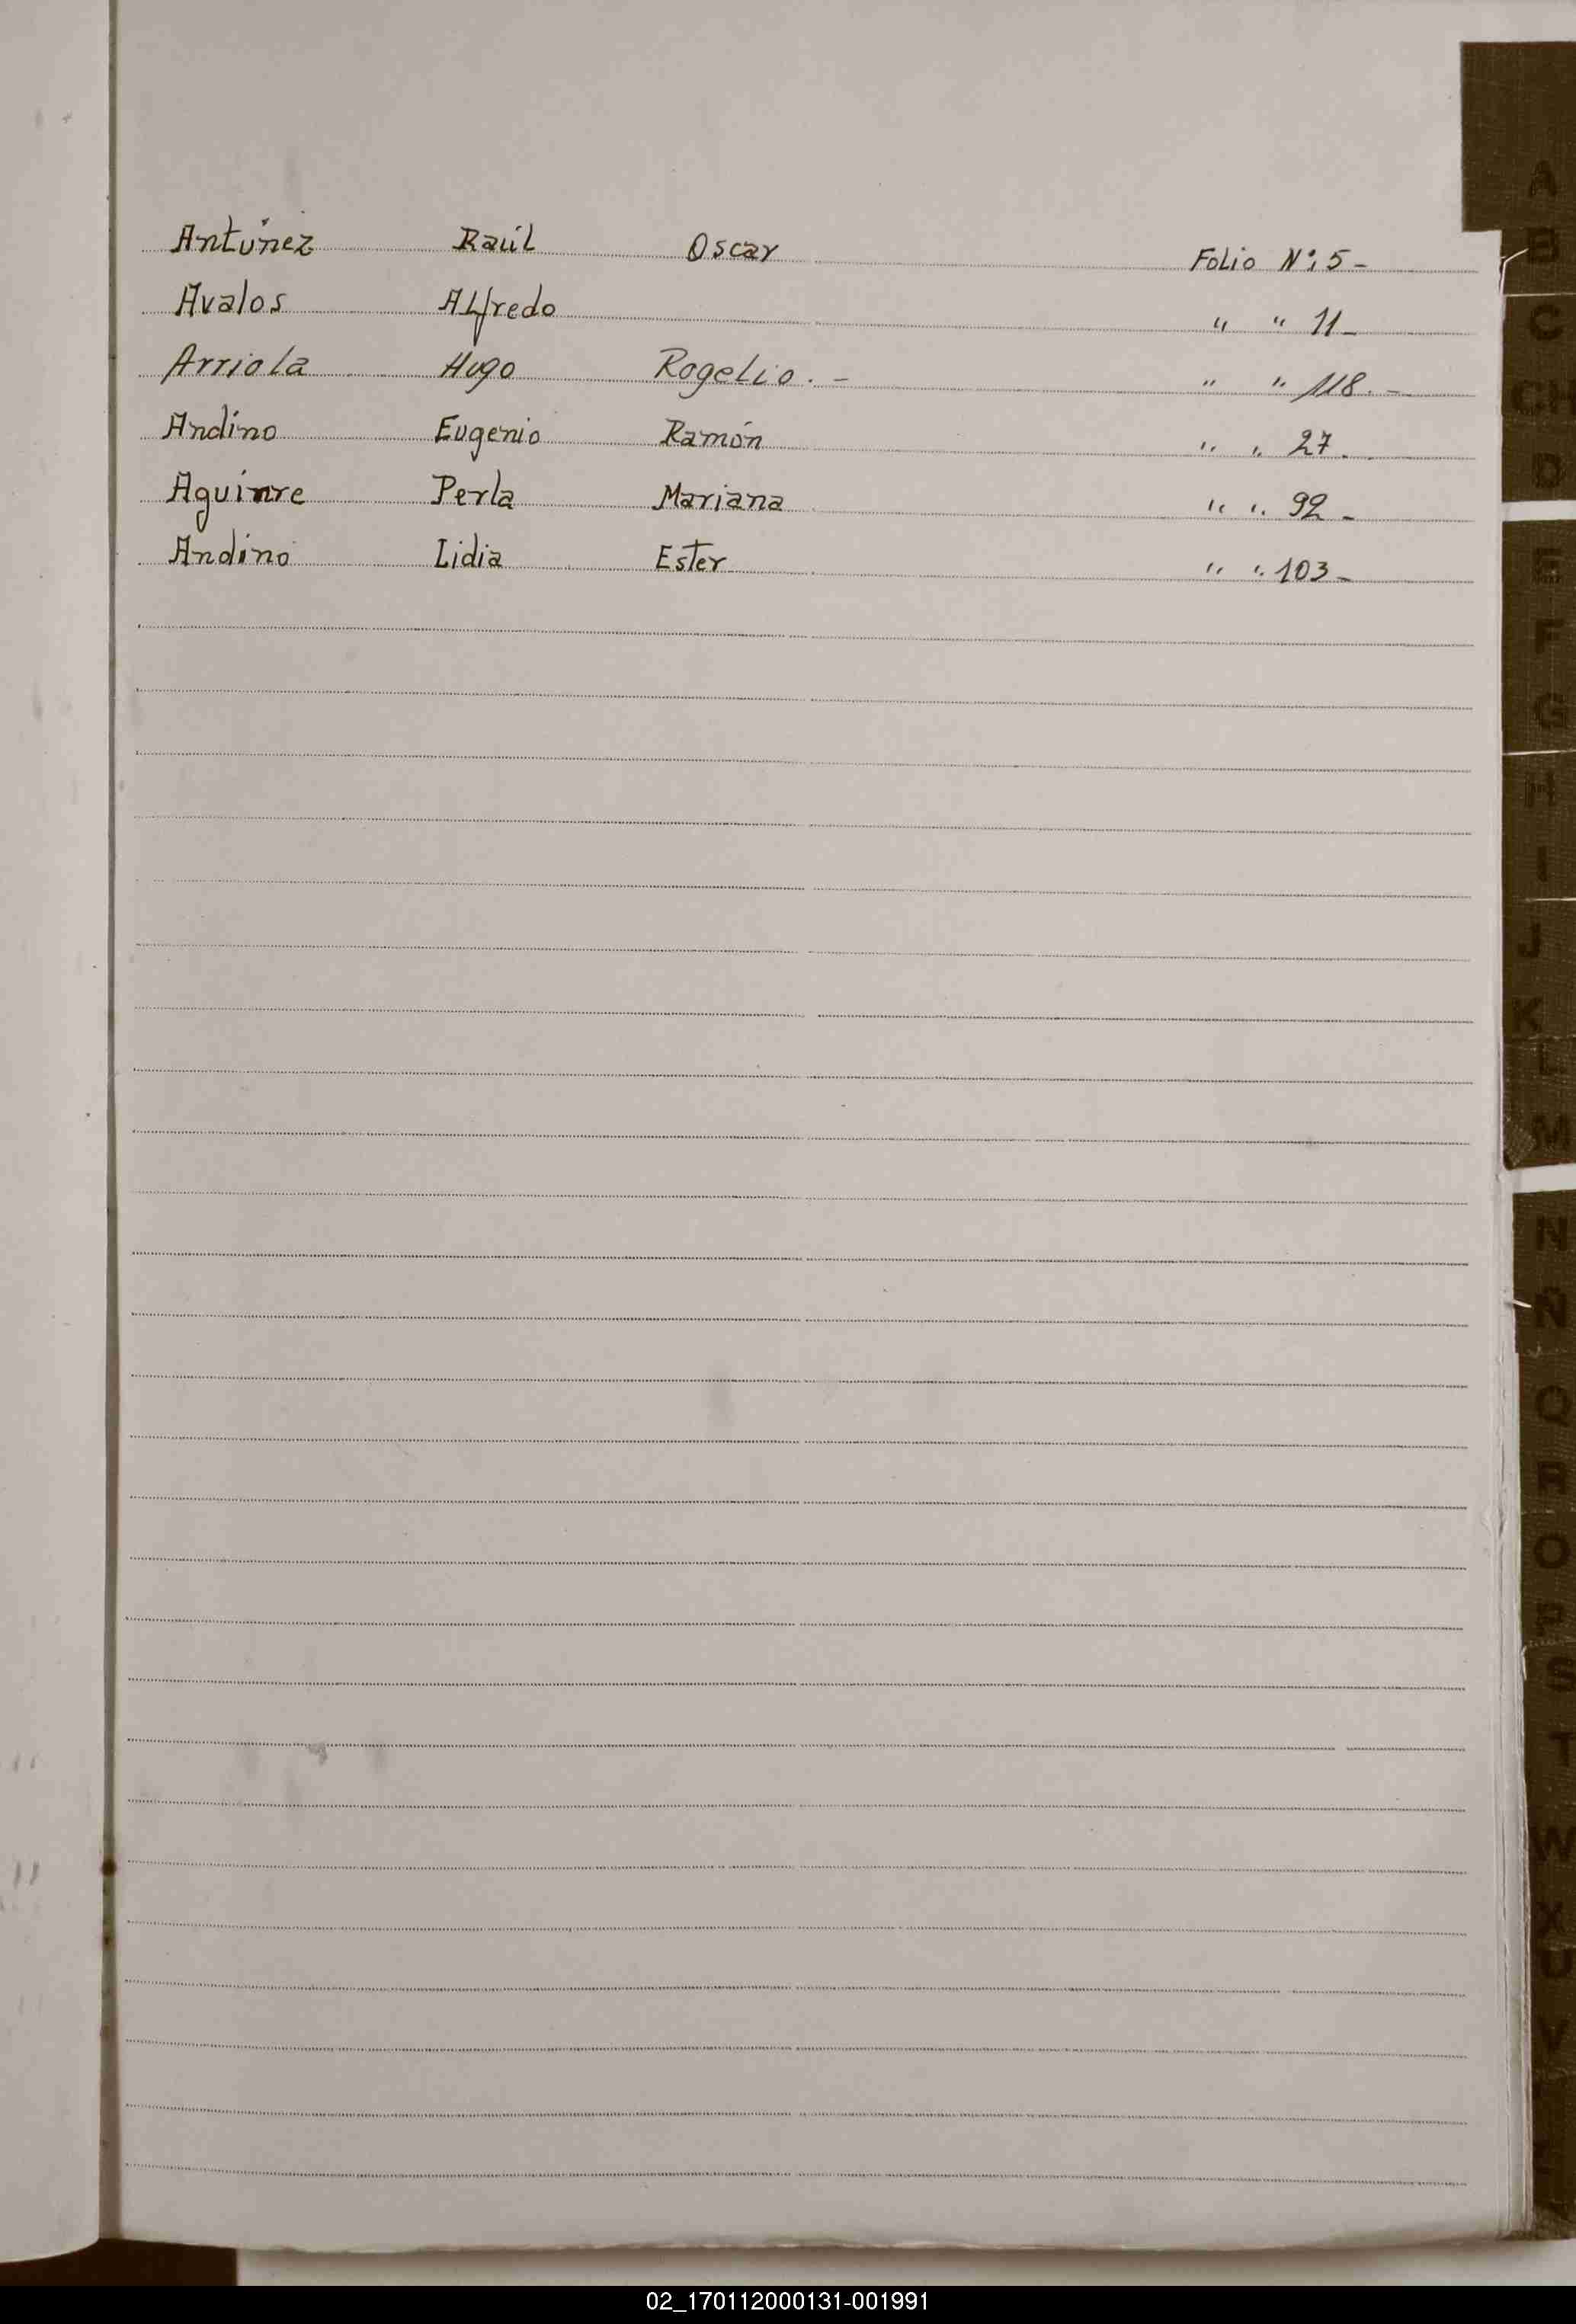 Antúnez Raúl Oscar Folio Nº: 5-
Avalos Alfredo " " 11-
Arriola Hugo Rogelio.- " " 118.-
Andino Eugenio Ramón " " 27.
Aguirre Perla Mariana " " 92-
Andino Lidia Ester " " 103-
A
B
C
CH
D
E
F
G
H
I
J
K
L
M
N
Ñ
Q
R
O
P
S
T
W
X
U
V
02_170112000131-001991